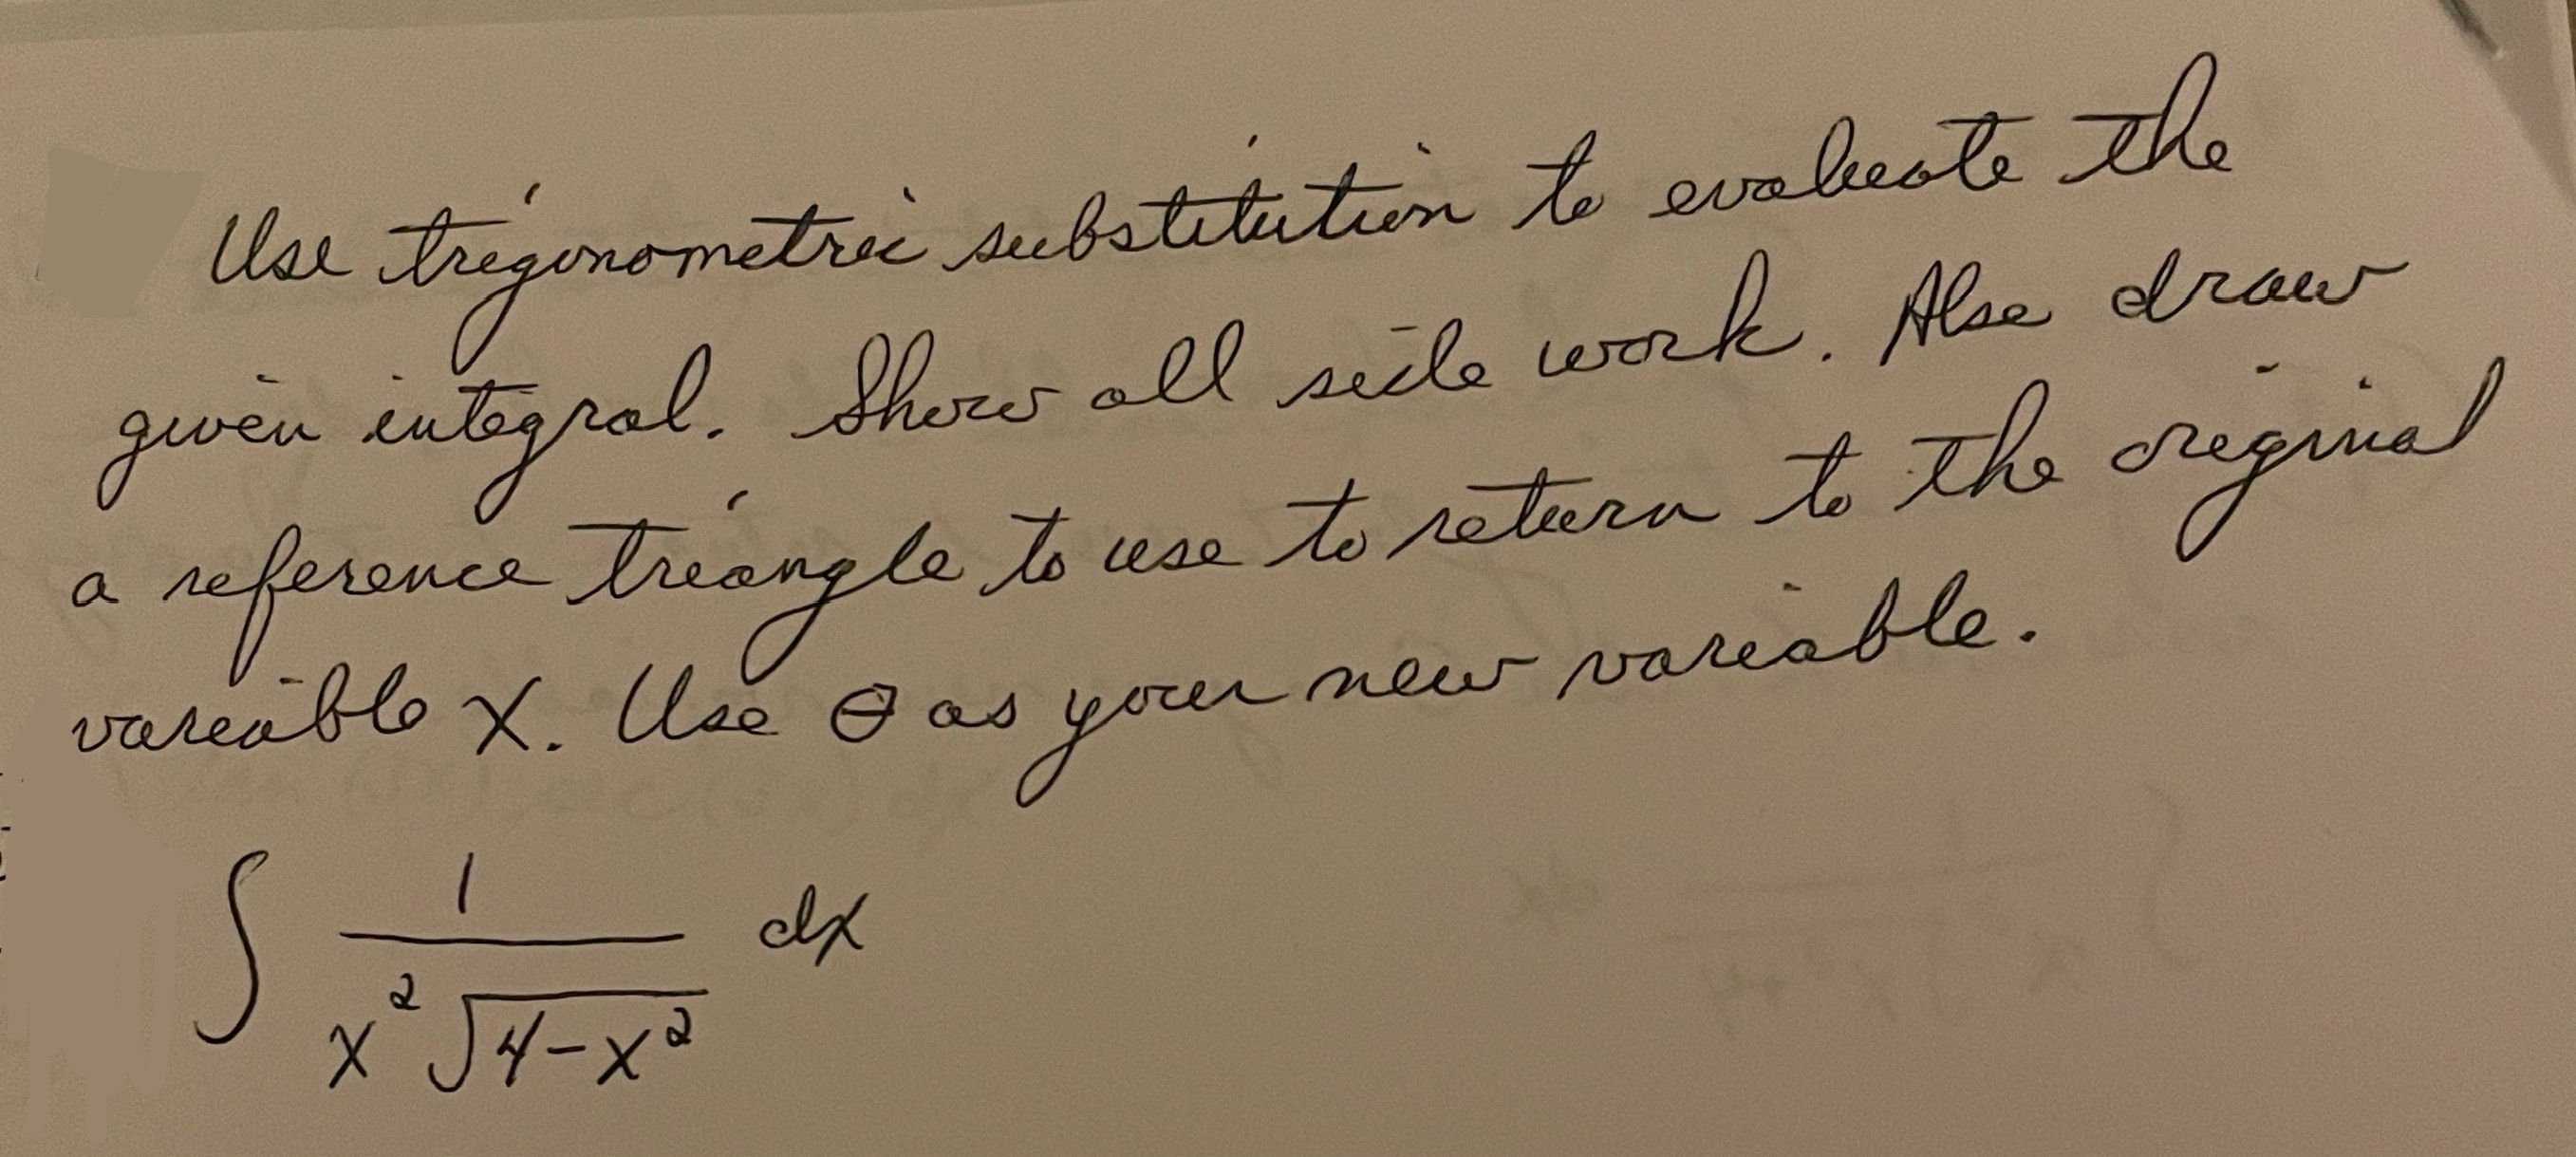 Use trigonometric substitution to evaluate the
given integral. Show all side work. Also draw
a reference triangle to use to return to the original
variable x. Use θ as your new variable.
∫ 1 / (x² √(4-x²)) dx